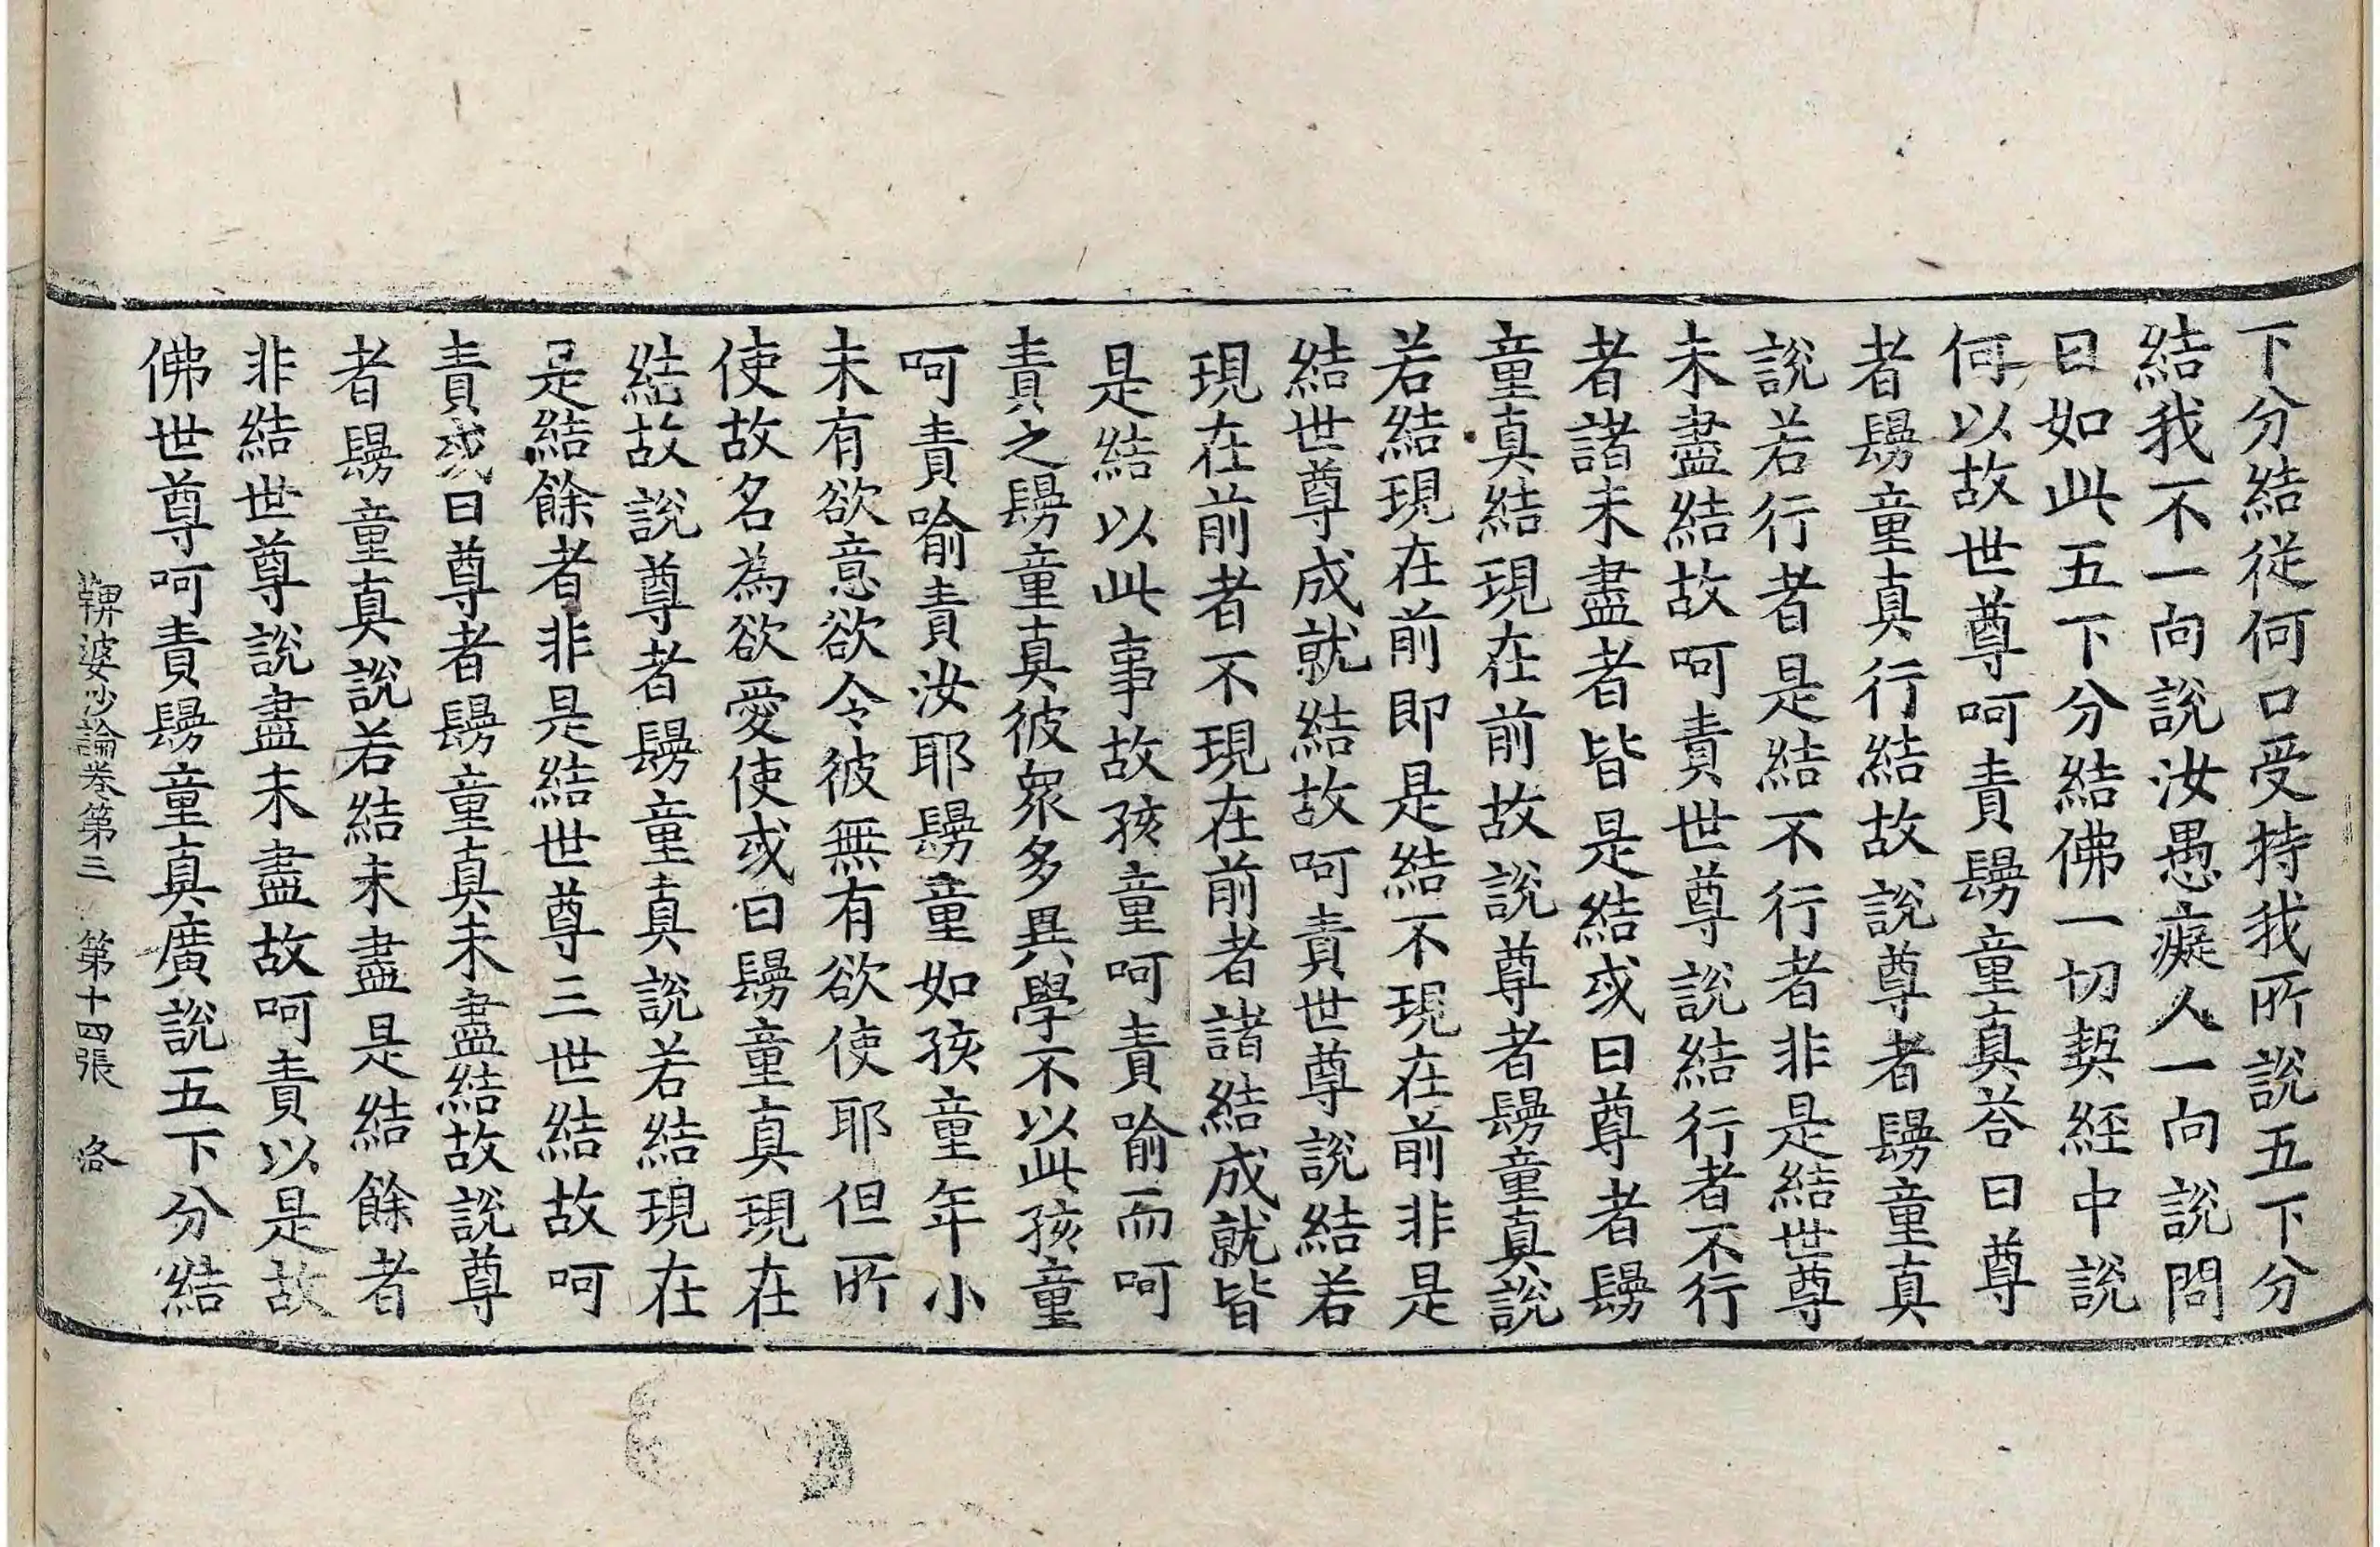 下分結從何口受持我所說五下分
結我不一向說汝愚癡人一向說問
曰如此五下分結佛一切契經中說
何以故世尊呵責鬘童真荅曰尊
者鬘童真行結故說尊者鬘童真
說若行者是結不行者非是結世尊
未盡結故呵責世尊說結行者不行
者諸未盡者皆是結或曰尊者鬘
童真結現在前故說尊者鬘童真說
若結現在前即是結不現在前非是
結世尊成就結故呵責世尊說結若
現在前者不現在前者諸結成就皆
是結以此事故孩童呵責喻而呵
責之鬘童真彼眾多異學不以此孩童
呵責喻責汝耶鬘童如孩童年小
未有欲意欲令彼無有欲使耶但所
使故名為欲愛使或曰鬘童真現在
結故說尊者鬘童真說若結現在
是結餘者非是結世尊三世結故呵
責或曰尊者鬘童真未盡結故說尊
者鬘童真說若結未盡是結餘者
非結世尊說盡未盡故呵責以是故
佛世尊呵責鬘童真廣說五下分結
鞞婆沙論卷第三 第十四張 洛